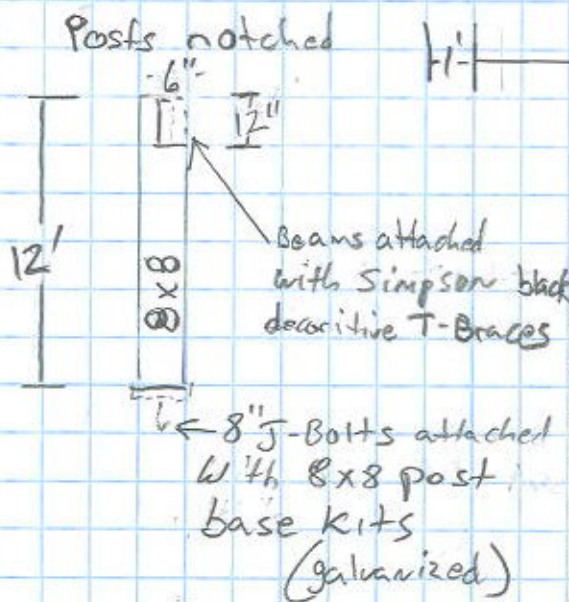 Posts notched
-6"-
1'
12"
12'
8x8
Beams attached
with Simpson black
decoritive T-Braces
8" J-Bolts attached
with 8x8 post
base kits
(galvanized)